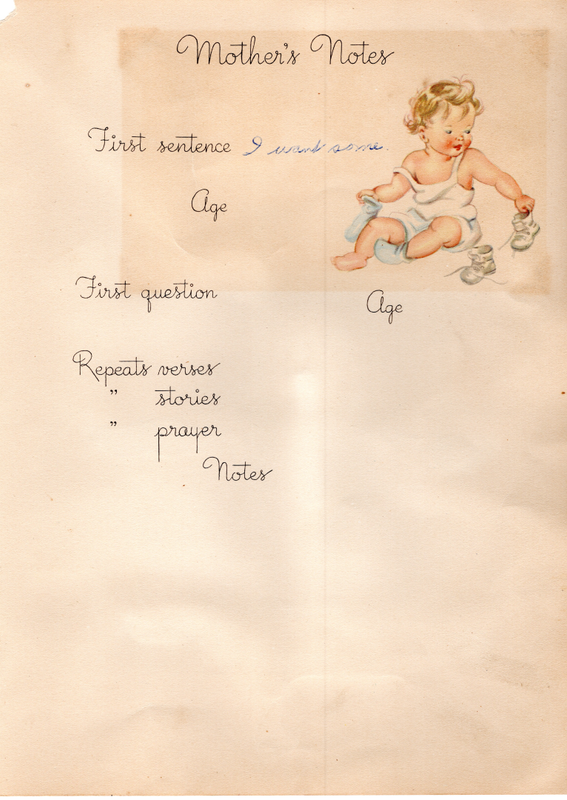 Mother's Notes
First sentence I want some.
Age
First question
Age
Repeats verses
” stories
” prayer
Notes